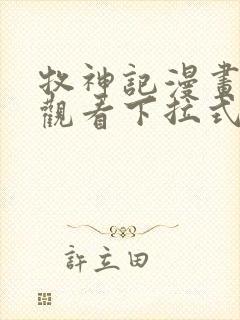 牧神記漫畫
觀看下拉式
許立田